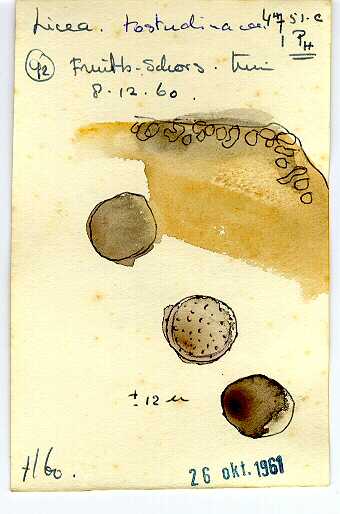 Licea. testudinacea
4751.c
1 PH
42 Fruitb-Schors. tuin
8.12.60.
± 12 u
H60.
26 okt. 1961